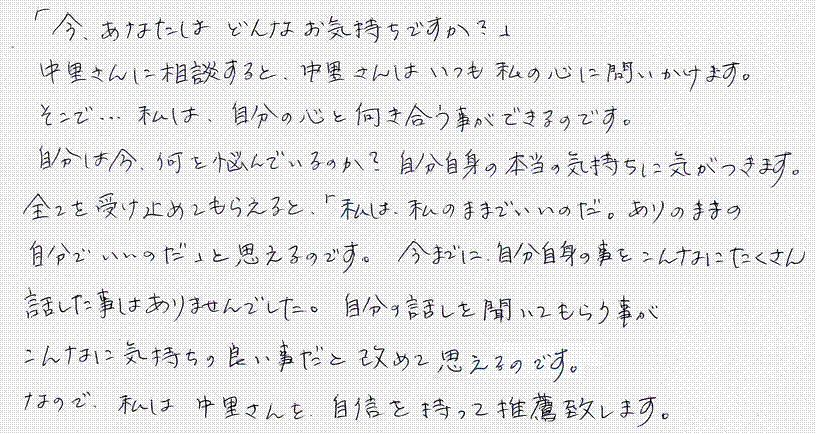 「今、あなたは どんなお気持ちですか？」
中里さんに相談すると、中里さんはいつも私の心に問いかけます。
そこで… 私は、自分の心と向き合う事ができるのです。
自分は今、何を悩んでいるのか？自分自身の本当の気持ちに気がつきます。
全てを受け止めてもらえると、「私は、私のままでいいのだ。ありのままの
自分でいいのだ」と思えるのです。 今までに、自分自身の事をこんなにたくさん
話した事はありませんでした。 自分の話しを聞いてもらう事が
こんなに気持ちの良い事だと改めて思えるのです。
なので、私は 中里さんを、自信を持って推薦致します。